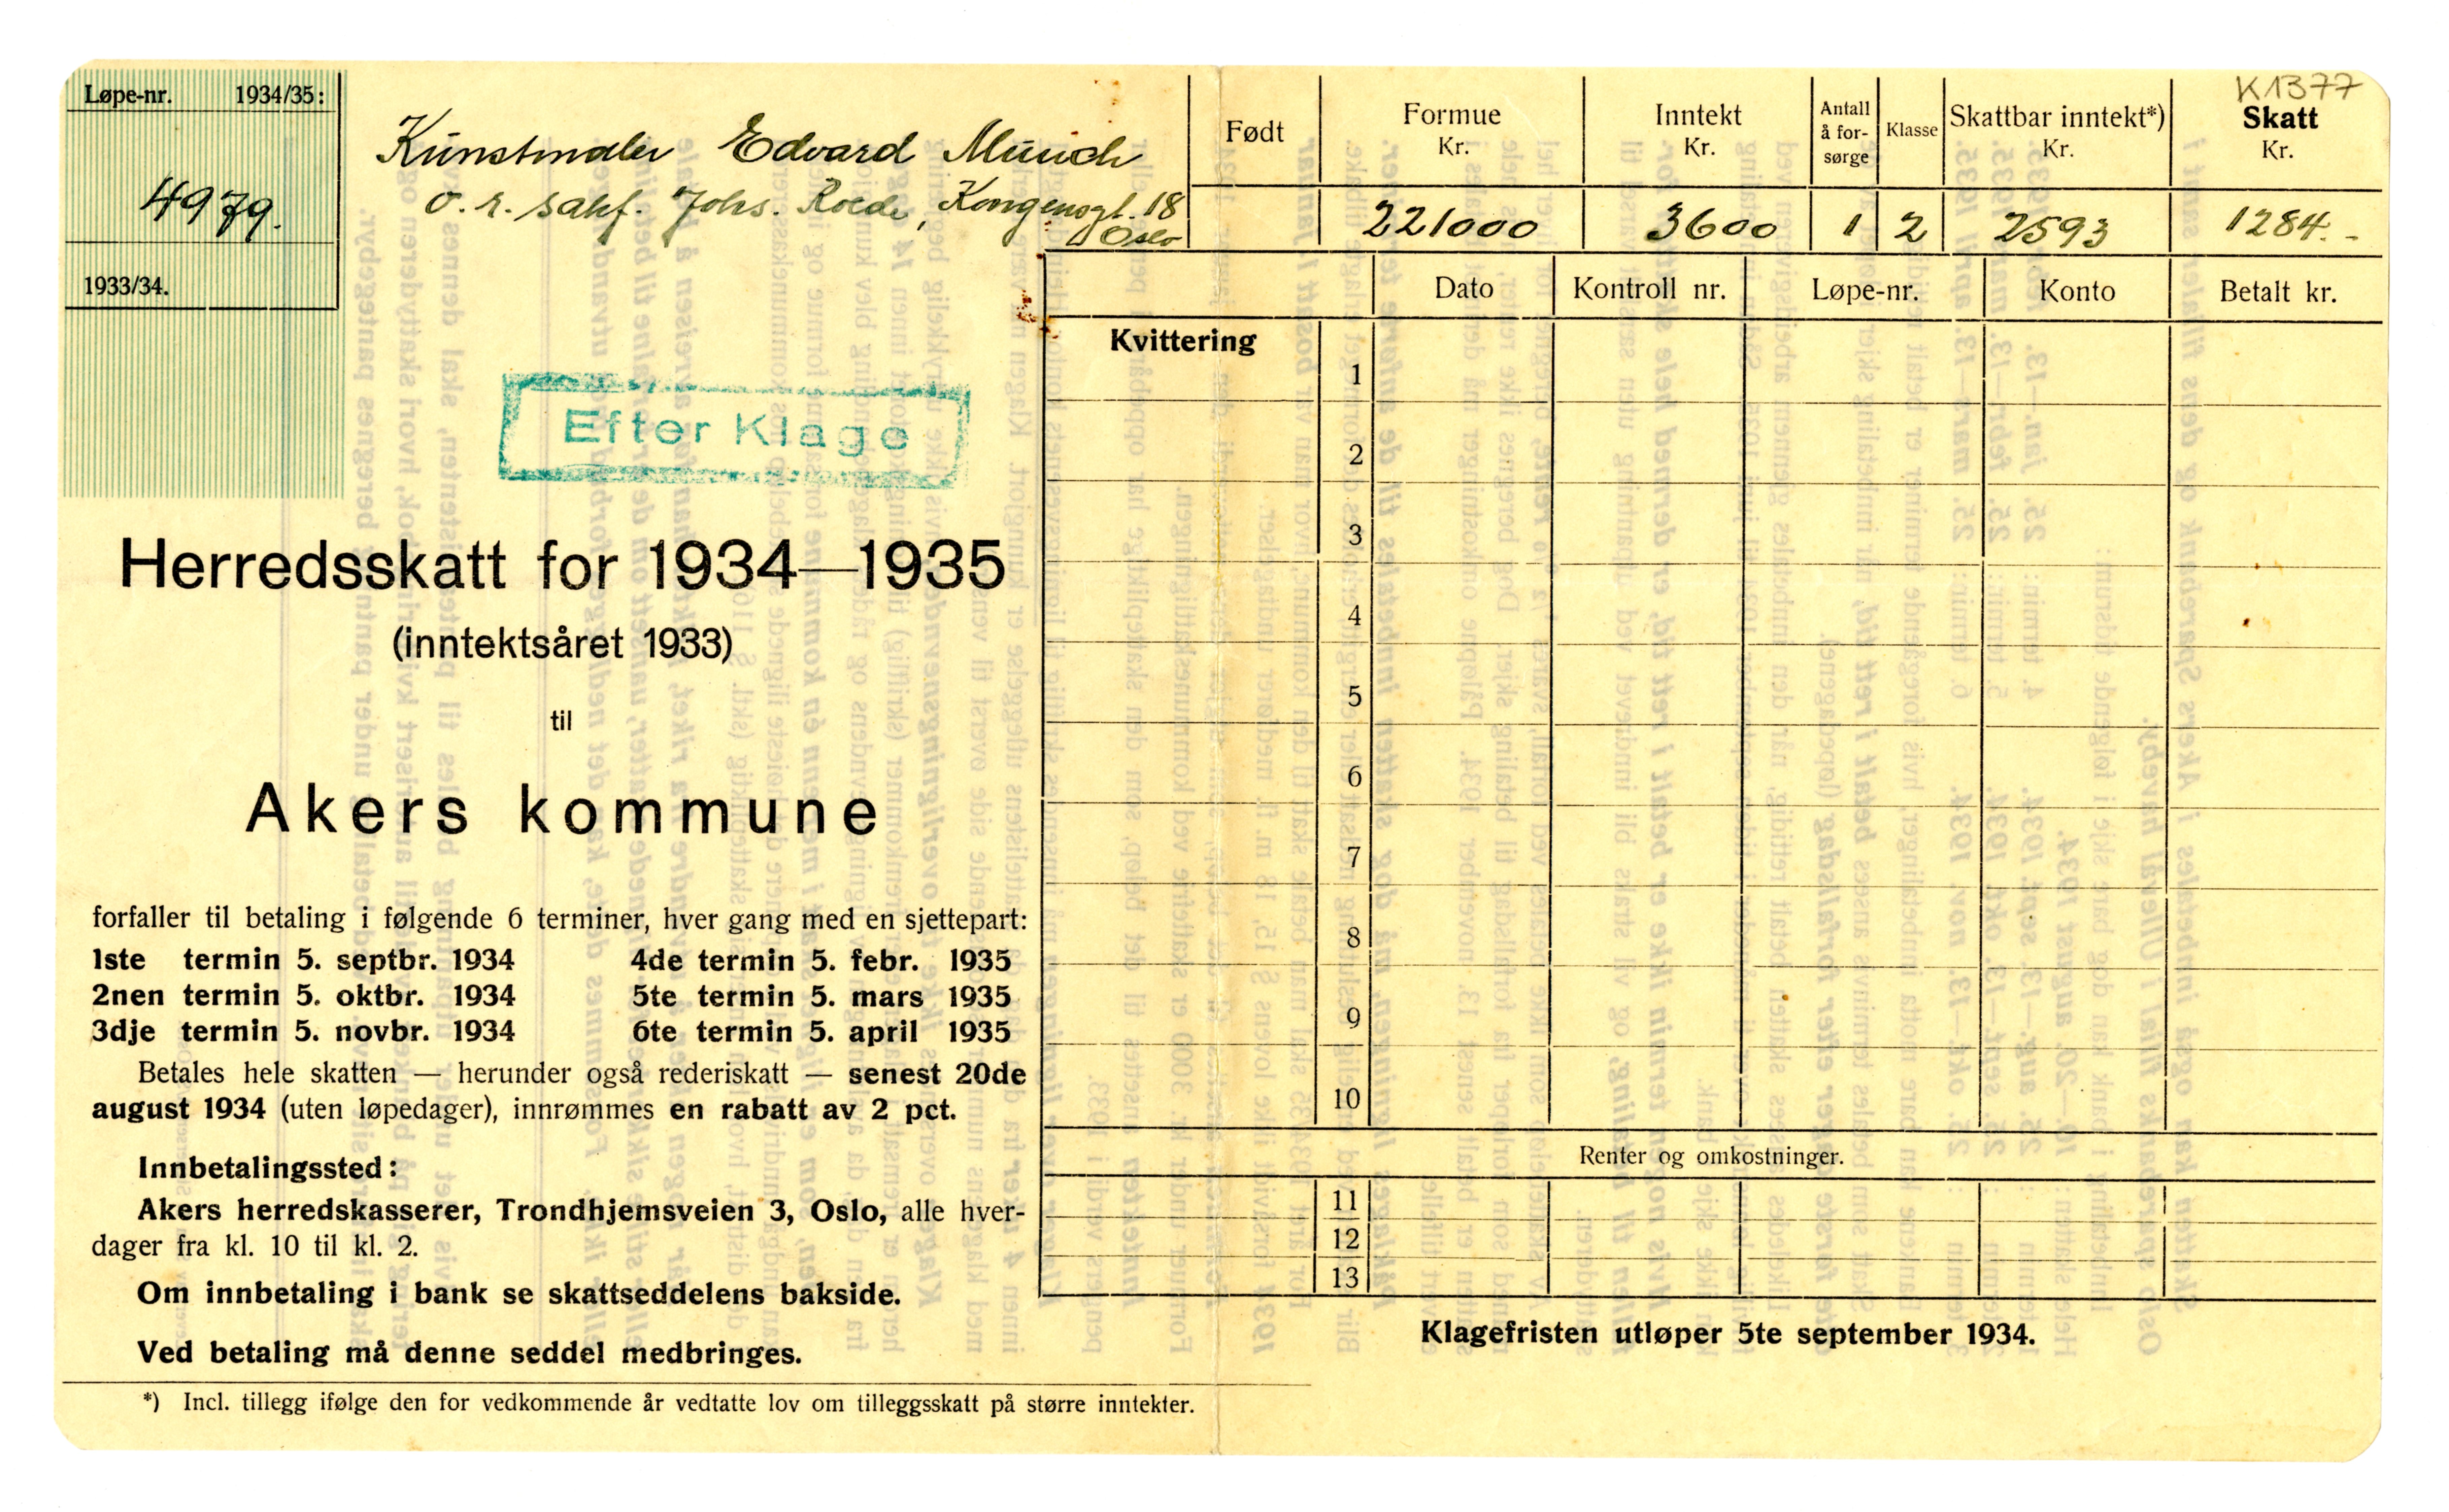 K1377
Løpe-nr. 1934/35:
4979.
1933/34.
Kunstmaler Edvard Munch
o. r. sakf. Johs. Roede, Kongensgt. 18
Oslo
Født
Formue Kr.
Inntekt Kr.
Antall å for-sørge
Klasse
Skattbar inntekt*) Kr.
Skatt Kr.
221000 3600 1 2 2593 1284.-
Dato Kontroll nr. Løpe-nr. Konto Betalt kr.
Kvittering
1
2
3
4
5
6
7
8
9
10
Renter og omkostninger.
11
12
13
Klagefristen utløper 5te september 1934.
Efter Klage
Herredsskatt for 1934—1935
(inntektsåret 1933)
til
Akers kommune
forfaller til betaling i følgende 6 terminer, hver gang med en sjettepart:
1ste termin 5. septbr. 1934 4de termin 5. febr. 1935
2nen termin 5. oktbr. 1934 5te termin 5. mars 1935
3dje termin 5. novbr. 1934 6te termin 5. april 1935
Betales hele skatten — herunder også rederiskatt — senest 20de
august 1934 (uten løpedager), innrømmes en rabatt av 2 pct.
Innbetalingssted:
Akers herredskasserer, Trondhjemsveien 3, Oslo, alle hver-
dager fra kl. 10 til kl. 2.
Om innbetaling i bank se skattseddelens bakside.
Ved betaling må denne seddel medbringes.
*) Incl. tillegg ifølge den for vedkommende år vedtatte lov om tilleggsskatt på større inntekter.